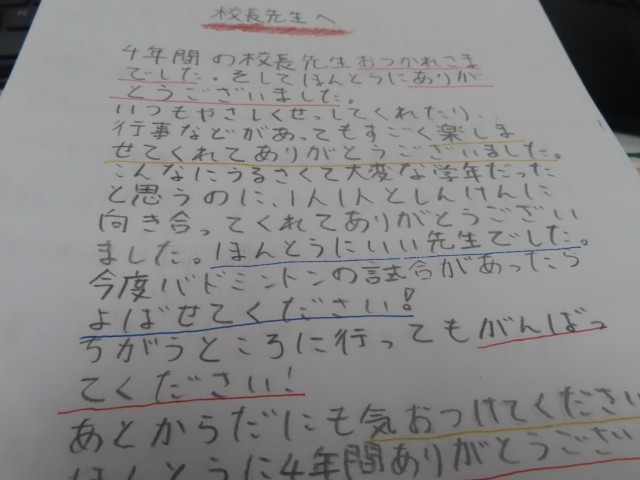 校長先生へ
4年間の校長先生おつかれさま
でした。そしてほんとうにありが
とうございました。
いつもやさしくせっしてくれたり、
行事などがあってもすごく楽しま
せてくれてありがとうございました。
こんなにうるさくて大変な学年だった
と思うのに、1人1人としんけんに
向き合ってくれてありがとうござい
ました。ほんとうにいい先生でした。
今度バドミントンの試合があったら
よばせてください!
ちがうところに行ってもがんばっ
てください!
あとからだにも気おつけてください
ほんとうに4年間ありがとうござい